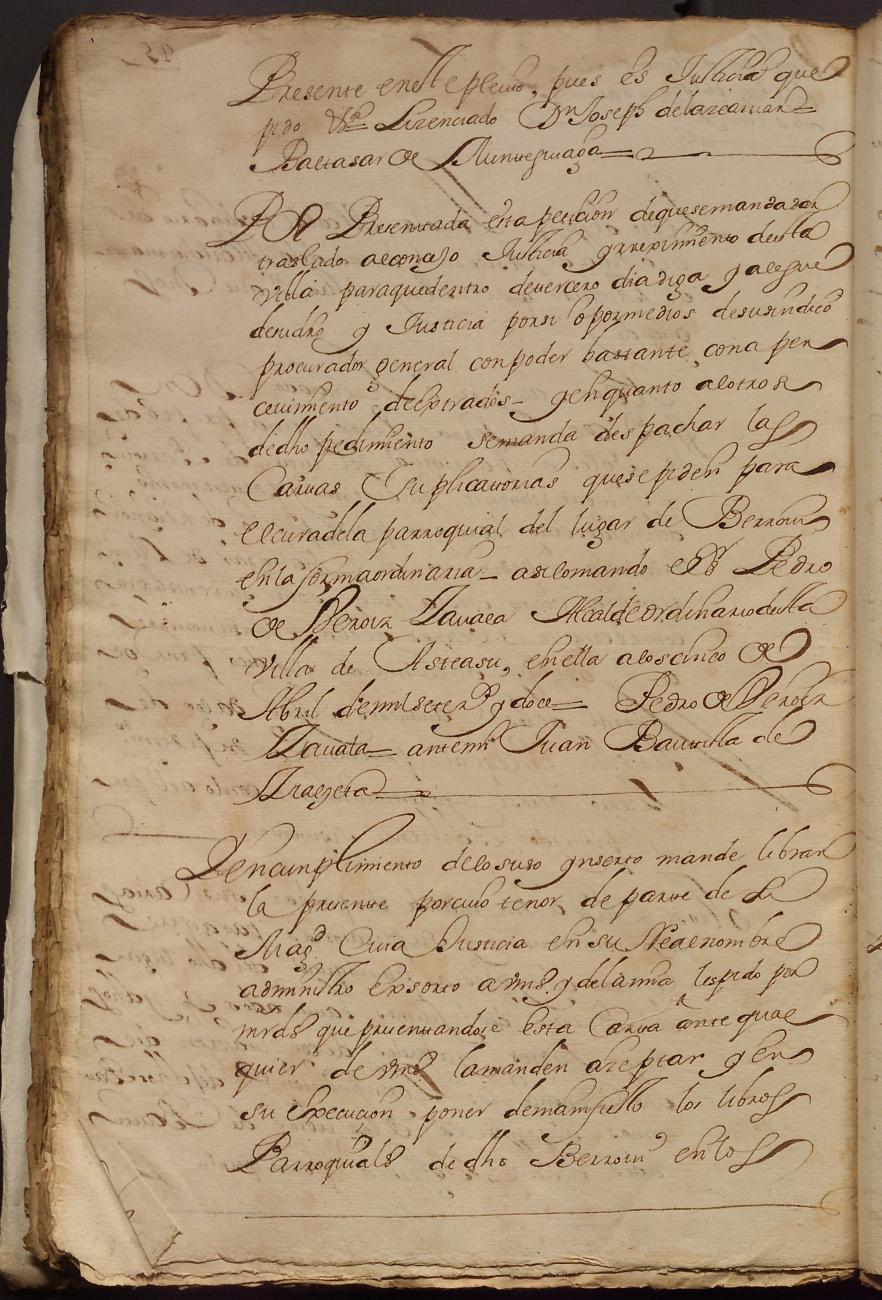 Presente en este pleito, pues es Justicia que
pido Lizenciado Dn Joseph de
Baltasar de
Presentada esta peticion de que se manda dar
traslado al conçejo Justicia y reximiento desta
villa para que dentro de tercero dia diga y alegue
de su drho y Justicia por si o por medios de su sindico
procurador general con poder bastante con aper
cevimiento de extrados y en quanto al otro si
de dho pedimiento se manda despachar las
Cartas Suplicatorias que se piden para
el cura de la parroquial del lugar de Berrovi
en la forma ordinaria asi lo mando el Sr Pedro
de Beroiz Zavala Alcalde ordinario desta
villa de Asteasu, en ella a los cinco de
Abril de mil setezos y doce Pedro de Beroiz
Zavala ante mi Juan Bauptista de
En cunplimiento de lo suso ynserto mande librar
la presente por cuio tenor de parte de Su
Magd Cuia Justicia en su Real nombre
administro Exsorto a vms y de la mia les pido por
mrds que presentandose Esta Carta ante qual
quiera de vms la manden azeptar y en
su execucion poner de manifiesto los libros
Parroquiales de dho Berrovi en los